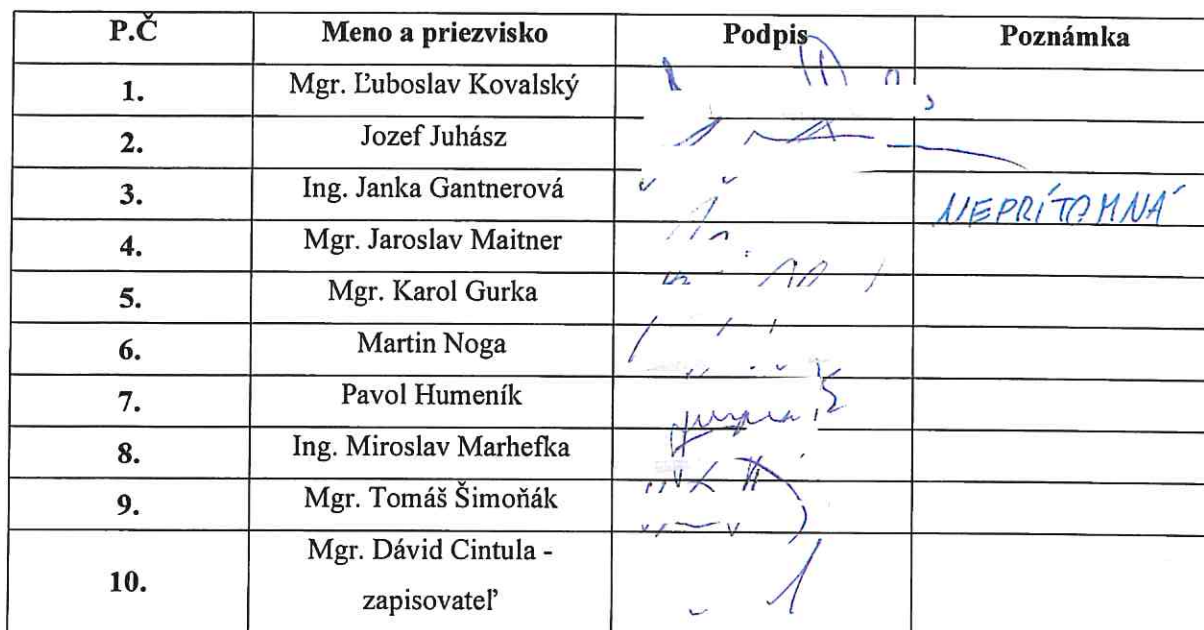 P.Č Meno a priezvisko Podpis Poznámka
1. Mgr. Ľuboslav Kovalský
2. Jozef Juhász
3. Ing. Janka Gantnerová NEPRÍTOMNÁ
4. Mgr. Jaroslav Maitner
5. Mgr. Karol Gurka
6. Martin Noga
7. Pavol Humeník
8. Ing. Miroslav Marhefka
9. Mgr. Tomáš Šimoňák
10. Mgr. Dávid Cintula -
zapisovateľ